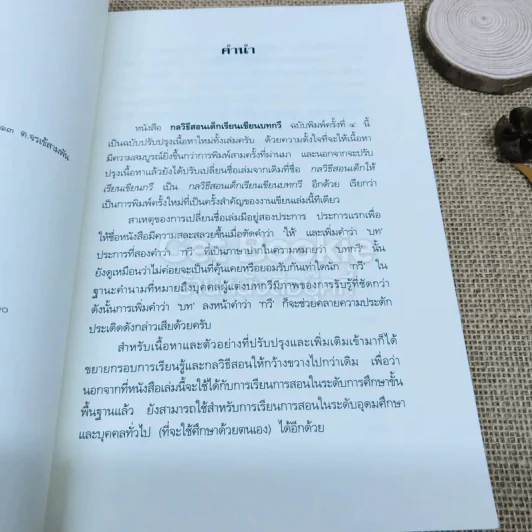 คำนำ
๑๓ ต.จรเข้สามพัน
หนังสือ กลวิธีสอนเด็กเรียนเขียนบทกวี ฉบับพิมพ์ครั้งที่ ๔ นี้
เป็นฉบับปรับปรุงเนื้อหาใหม่ทั้งเล่มครับ ด้วยความตั้งใจที่จะให้เนื้อหา
มีความสมบูรณ์ยิ่งขึ้นกว่าการพิมพ์สามครั้งที่ผ่านมา และนอกจากจะปรับ
ปรุงเนื้อหาแล้วยังได้ปรับเปลี่ยนชื่อเล่มจากเดิมที่ชื่อ กลวิธีสอนเด็กให้
เรียนเขียนกวี เป็น กลวิธีสอนเด็กเรียนเขียนบทกวี อีกด้วย เรียกว่า
เป็นการพิมพ์ใหม่ที่เป็นครั้งสำคัญของงานเขียนเล่มนี้ทีเดียว
สาเหตุของการเปลี่ยนชื่อเล่มมีอยู่สองประการ ประการแรกเพื่อ
ให้ชื่อหนังสือมีความสละสลวยขึ้นเมื่อตัดคำว่า 'ให้' และเพิ่มคำว่า 'บท'
ประการที่สองคำว่า 'กวี' ที่เป็นภาษาปากในความหมายว่า 'บทกวี' นั้น
ยังดูเหมือนว่าไม่ค่อยจะเป็นที่คุ้นเคยหรือยอมรับกันเท่าใดนัก 'กวี' ใน
ฐานะคำนามที่หมายถึงบุคคลผู้แต่งบทกวีมีภาพของการรับรู้ที่ชัดกว่า
ดังนั้นการเพิ่มคำว่า 'บท' ลงหน้าคำว่า 'กวี' ก็จะช่วยคลายความประดัก
ประเดิดดังกล่าวเสียด้วยครับ
สำหรับเนื้อหาและตัวอย่างที่ปรับปรุงและเพิ่มเติมเข้ามาก็ได้
ขยายกรอบการเรียนรู้และกลวิธีสอนให้กว้างขวางไปกว่าเดิม เพื่อว่า
นอกจากที่หนังสือเล่มนี้จะใช้ได้กับการเรียนการสอนในระดับการศึกษาขั้น
พื้นฐานแล้ว ยังสามารถใช้สำหรับการเรียนการสอนในระดับอุดมศึกษา
และบุคคลทั่วไป (ที่จะใช้ศึกษาด้วยตนเอง) ได้อีกด้วย